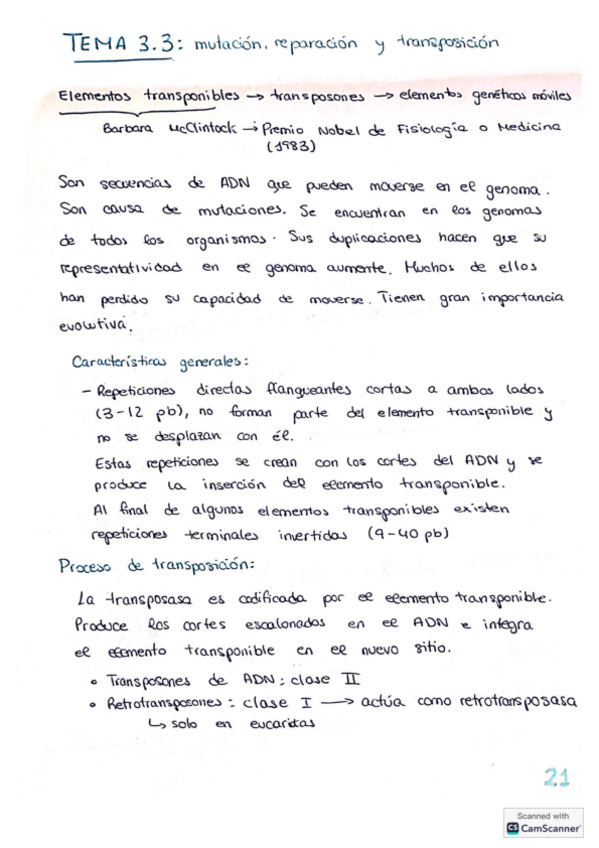 TEMA 3.3: mutación, reparación y transposición
Elementos transponibles → transposones → elementos genéticos móviles
Barbara McClintock → Premio Nobel de Fisiología o Medicina
(1983)
Son secuencias de ADN que pueden moverse en el genoma.
Son causa de mutaciones. Se encuentran en los genomas
de todos los organismos. Sus duplicaciones hacen que su
representatividad en el genoma aumente. Muchos de ellos
han perdido su capacidad de moverse. Tienen gran importancia
evolutiva.
Características generales:
- Repeticiones directas flanqueantes cortas a ambos lados
(3-12 pb), no forman parte del elemento transponible y
no se desplazan con él.
Estas repeticiones se crean con los cortes del ADN y se
produce la inserción del elemento transponible.
Al final de algunos elementos transponibles existen
repeticiones terminales invertidas (9-40 pb)
Proceso de transposición:
La transposasa es codificada por el elemento transponible.
Produce los cortes escalonados en el ADN e integra
el elemento transponible en el nuevo sitio.
• Transposones de ADN: clase II
• Retrotransposones: clase I → actúa como retrotransposasa
↳ solo en eucariotas
21
Scanned with
CS CamScanner